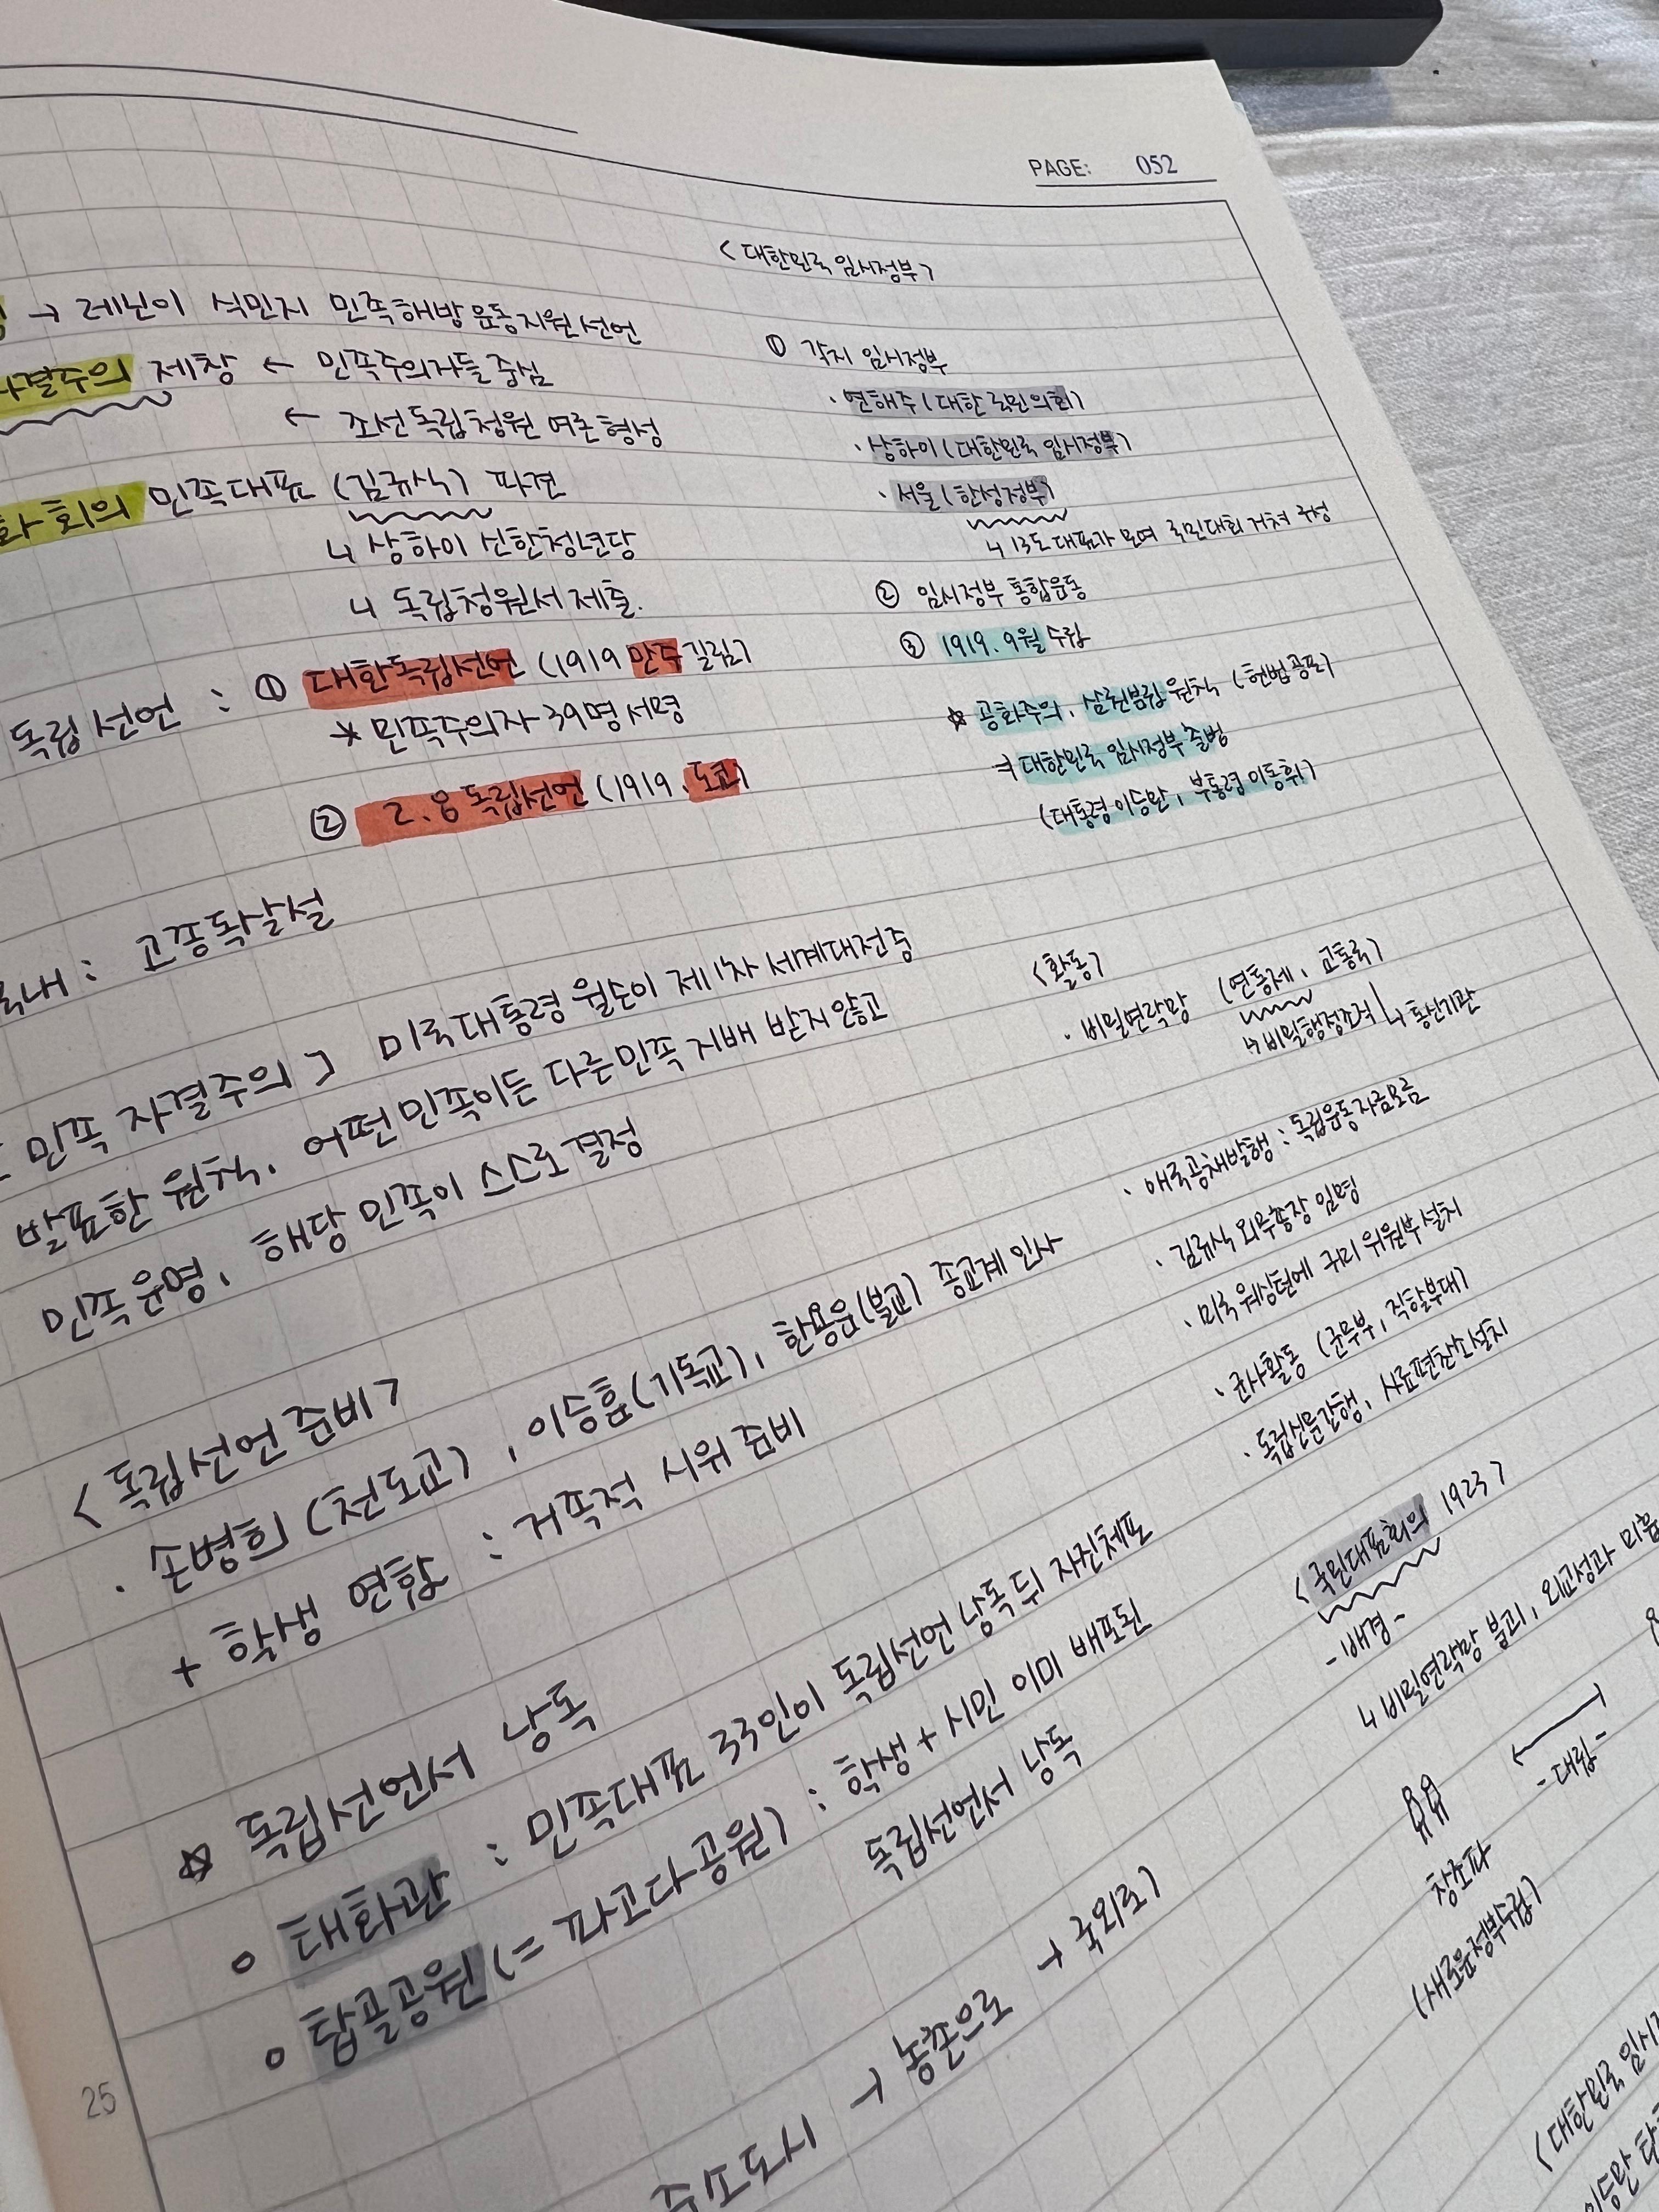 PAGE: 052
→ 레닌이 식민지 민족해방 운동지원 선언
자결주의 제창 ← 민족주의자들 중심
← 조선독립청원 여론형성
화 회의 민족대표 (김규식) 파견
↳ 상하이 신한청년당
↳ 독립청원서 제출.
독립 선언 : ① 대한독립선언 (1919 만주 길림)
* 민족주의자 39명 서명
② 2.8 독립선언 (1919. 도쿄)
국내 : 고종독살설
민족 자결주의 > 미국대통령 윌슨이 제1차 세계대전중
발표한 원칙. 어떤 민족이든 다른민족 지배 받지않고
민족운명, 해당 민족이 스스로 결정
< 독립선언 준비 >
· 손병희 (천도교), 이승훈(기독교), 한용운(불교) 종교계 인사
+ 학생 연합 : 거족적 시위 준비
☆ 독립선언서 낭독
○ 태화관 : 민족대표 33인이 독립선언 낭독 뒤 자진체포
○ 탑골공원 (= 파고다공원) : 학생 + 시민 이미 배포된
독립선언서 낭독
주도시 → 농촌으로 → 국외로)
25
< 대한민국 임시정부 >
① 각지 임시정부
· 연해주 (대한 국민의회)
· 상하이 (대한민국 임시정부)
· 서울 (한성정부)
↳ 13도 대표가 모여 국민대회 거쳐 구성
② 임시정부 통합운동
③ 1919. 9월 수립
☆ 공화주의, 삼권분립 원칙 (헌법공포)
⇒ 대한민국 임시정부 출범
(대통령 이승만, 부통령 이동휘)
<활동>
· 비밀연락망 (연통제, 교통국)
↳ 비밀행정조직 ↳ 통신기관
· 애국공채발행 : 독립운동자금모금
· 김규식 외무총장 임명
· 미국 워싱턴에 구미 위원부 설치
· 군사활동 (군무부, 직할부대)
· 독립신문간행, 사료편찬소설치
< 국민대표회의 1923 >
- 배경 -
↳ 비밀연락망 붕괴, 외교성과 미흡
- 대립 -
창조파
(새로운정부수립)
(대한민국 임시